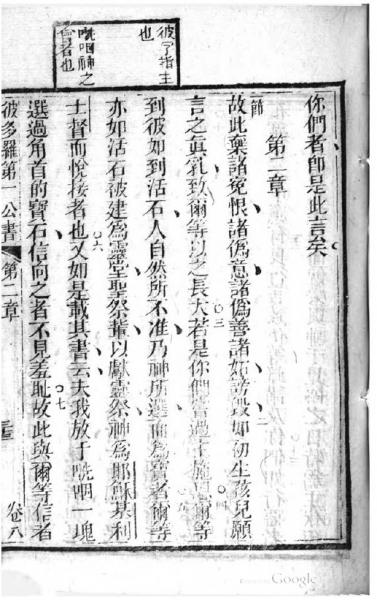 彼字指主
也
神之
會者也
你們者卽是此言矣
第二章
節
故此棄諸冤恨諸僞意諸僞善諸妬謗毀如初生孩兒願
言之眞乳致爾等以之長大若是你們嘗過主施爾等
到彼如到活石人自然所不准乃神所選而爲寶者爾等
亦如活石被建爲靈堂聖祭輩以獻靈祭神爲耶穌基利
士督而悅接者也又如是載其書云夫我放于咣咽一塊
選過角首的寶石信向之者不見羞恥故此與爾等信者
彼多羅第一公書 第二章 卷八
Google